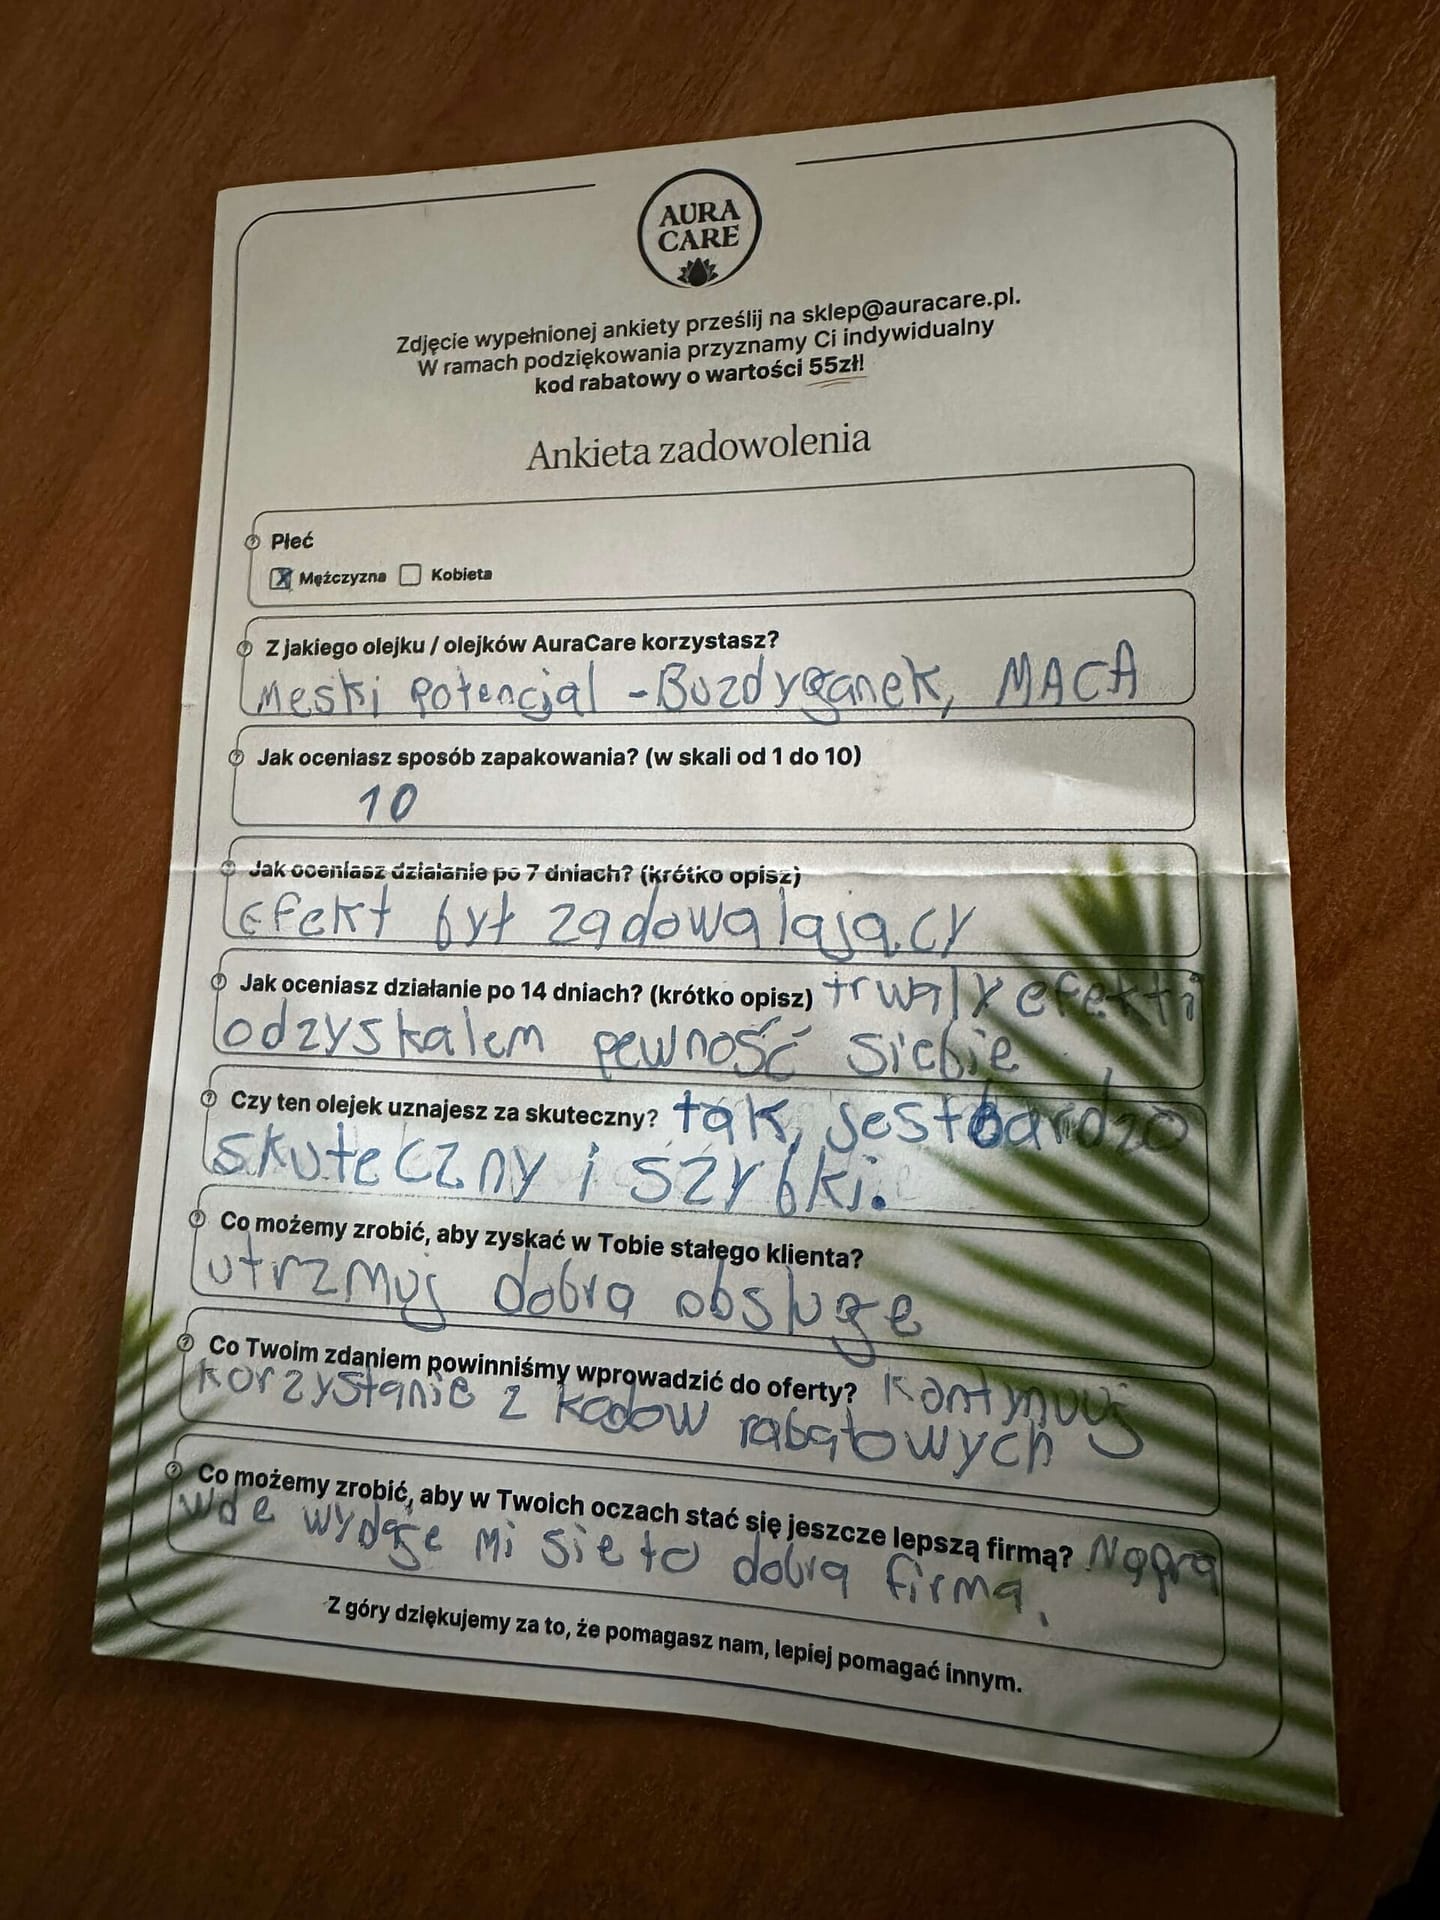 AURA
CARE
Zdjęcie wypełnionej ankiety prześlij na sklep@auracare.pl.
W ramach podziękowania przyznamy Ci indywidualny
kod rabatowy o wartości 55zł!
Ankieta zadowolenia
Płeć
X Mężczyzna Kobieta
Z jakiego olejku / olejków AuraCare korzystasz?
Meski Potencjal - Buzdyganek, MACA
Jak oceniasz sposób zapakowania? (w skali od 1 do 10)
10
Jak oceniasz działanie po 7 dniach? (krótko opisz)
efekt był zadowalający
Jak oceniasz działanie po 14 dniach? (krótko opisz) trwały efekt i
odzyskalem pewność siebie
Czy ten olejek uznajesz za skuteczny? tak, jest bardzo
skuteczny i szybki.
Co możemy zrobić, aby zyskać w Tobie stałego klienta?
utrzmuj dobra obsluge
Co Twoim zdaniem powinniśmy wprowadzić do oferty? Kontynuuj
korzystanie z kodow rabatowych
Co możemy zrobić, aby w Twoich oczach stać się jeszcze lepszą firmą? Napra
wde wydaje mi sie to dobra firma.
Z góry dziękujemy za to, że pomagasz nam, lepiej pomagać innym.